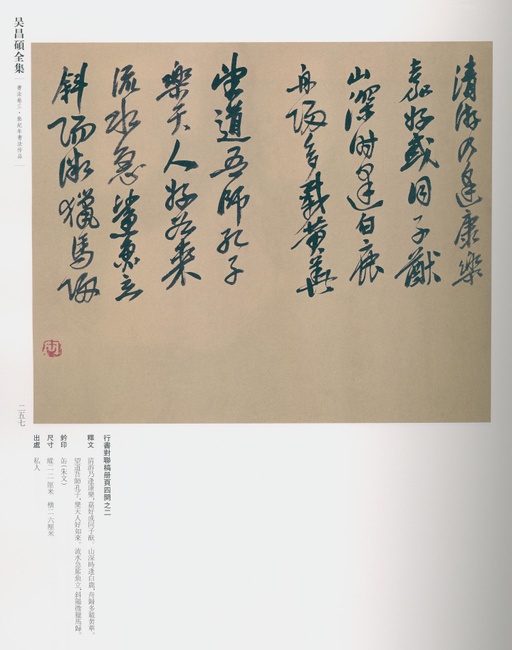 清游乃逢康樂
嘉好或同子猷
山深時逢白鹿
舟歸多載黃華
望道吾師孔子
樂天人好如來
流水急魚立
斜陽澹獵馬歸
缶
吴昌碩全集
書法卷三·無紀年書法作品
二五七
行書對聯稿册頁四開之二
釋文 清游乃逢康樂，嘉好或同子猷。山深時逢白鹿，舟歸多載黃華。
望道吾師孔子，樂天人好如來。流水急魚立，斜陽澹獵馬歸。
鈐印 缶(朱文)
尺寸 縱二二厘米 橫二六厘米
出處 私人